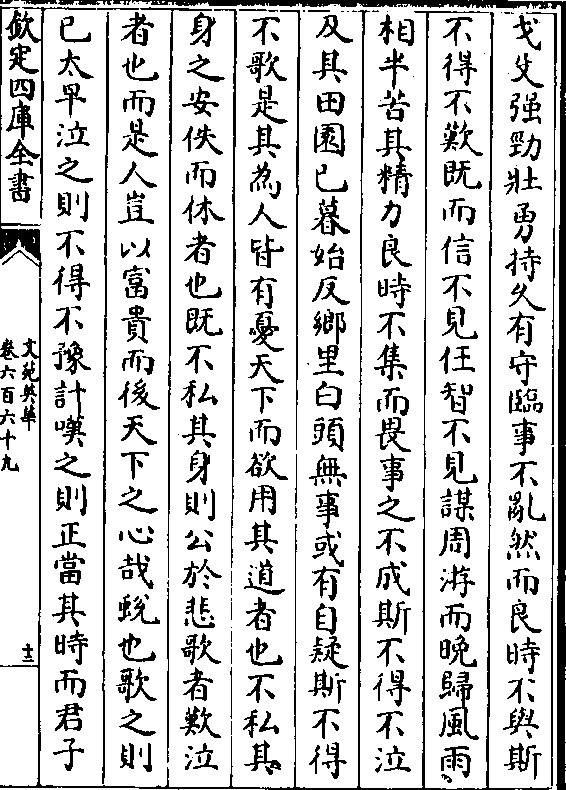 戈殳強勁壯勇持久有守臨事不亂然而良時不與斯
不得不歎既而信不見任智不見謀周游而晚歸風雨
相半苦其精力良時不集而畏事之不成斯不得不泣
及其田園已暮始反鄉里白頭無事或有自疑斯不得
不歌是其為人皆有憂天下而欲用其道者也不私其
身之安佚而休者也既不私其身則公於悲歌者歎泣
者也而是人豈以富貴而後天下之心哉蛻也歌之則
已太早泣之則不得不豫計嘆之則正當其時而君子
欽定四庫全書
文苑英華
卷六百六十九
十三